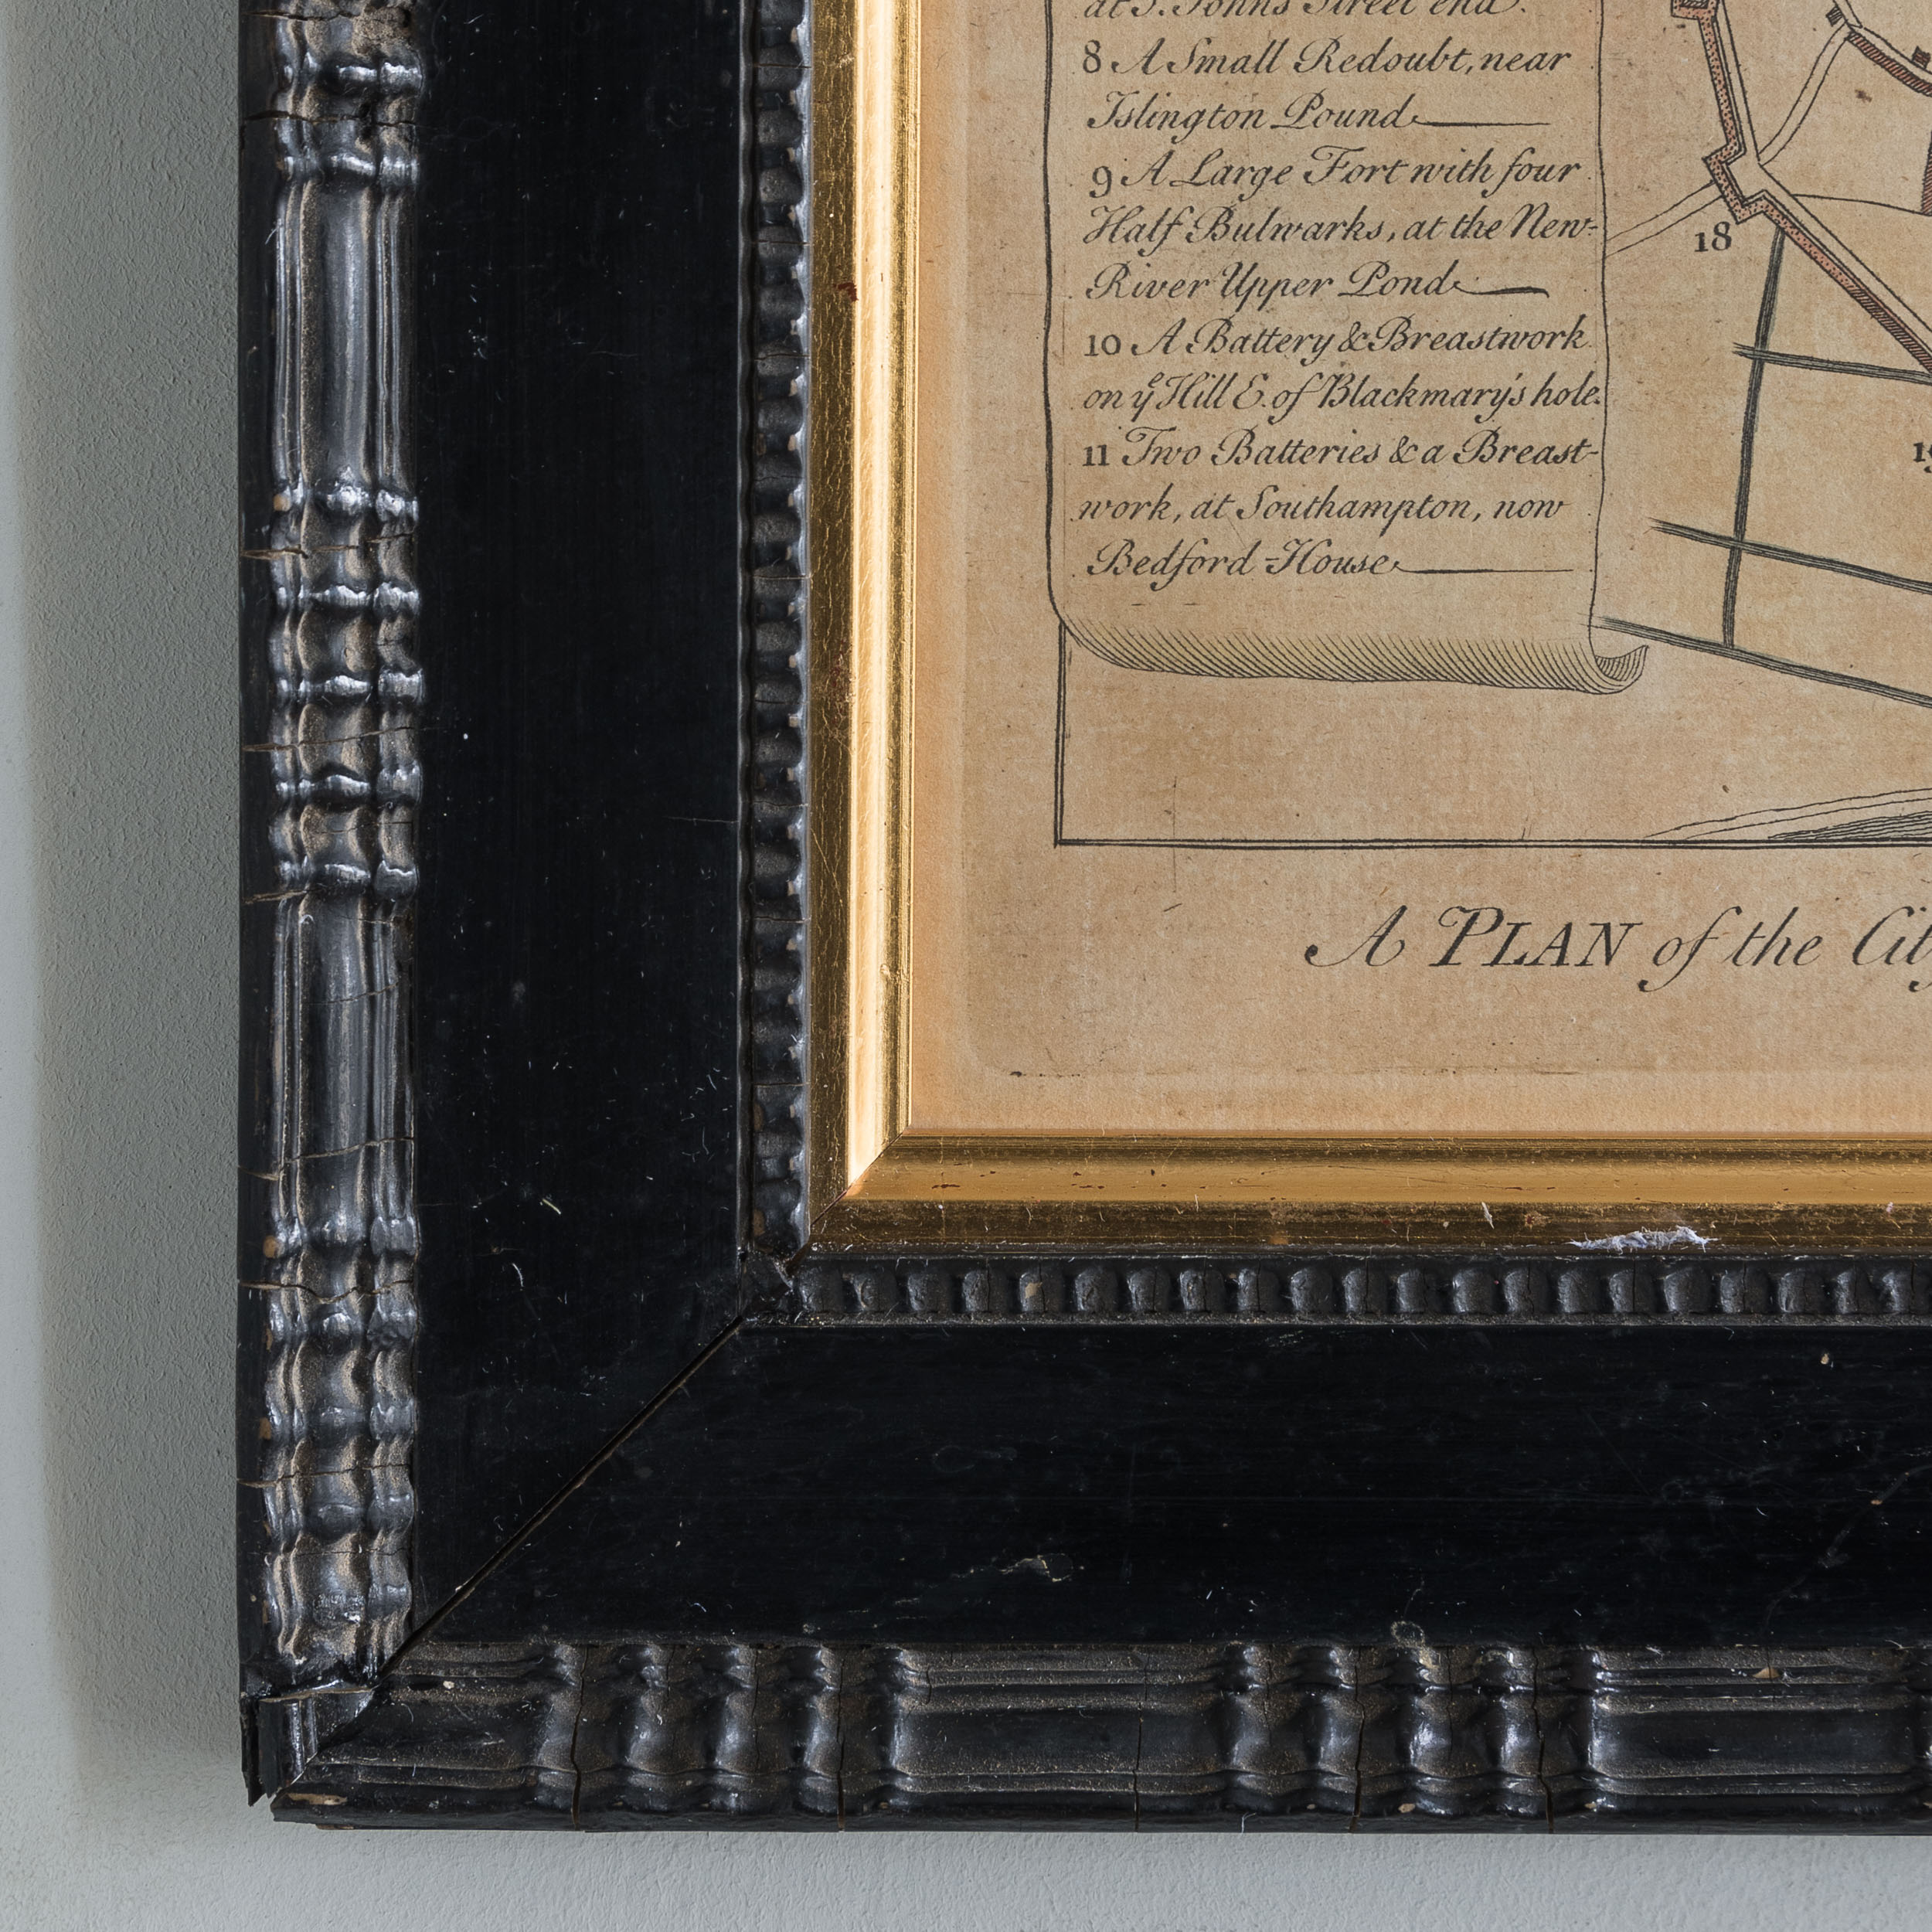 at S. Johns Street end.
8 A Small Redoubt, near
Islington Pound
9 A Large Fort with four
Half Bulwarks, at the New-
River Upper Pond
10 A Battery & Breastwork
on yͤ Hill E. of Blackmary's hole.
11 Two Batteries & a Breast-
work, at Southampton, now
Bedford-House
18
A PLAN of the City